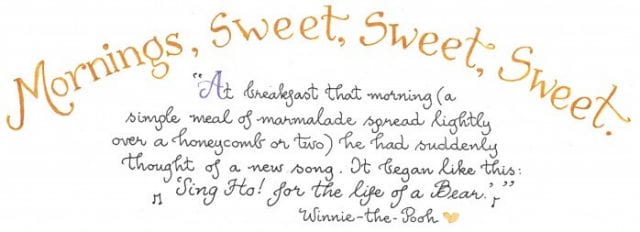 Mornings, Sweet, Sweet, Sweet.
"At breakfast that morning (a
simple meal of marmalade spread lightly
over a honeycomb or two) he had suddenly
thought of a new song. It began like this:
♫ 'Sing Ho! for the life of a Bear.' ♪"
Winnie-the-Pooh